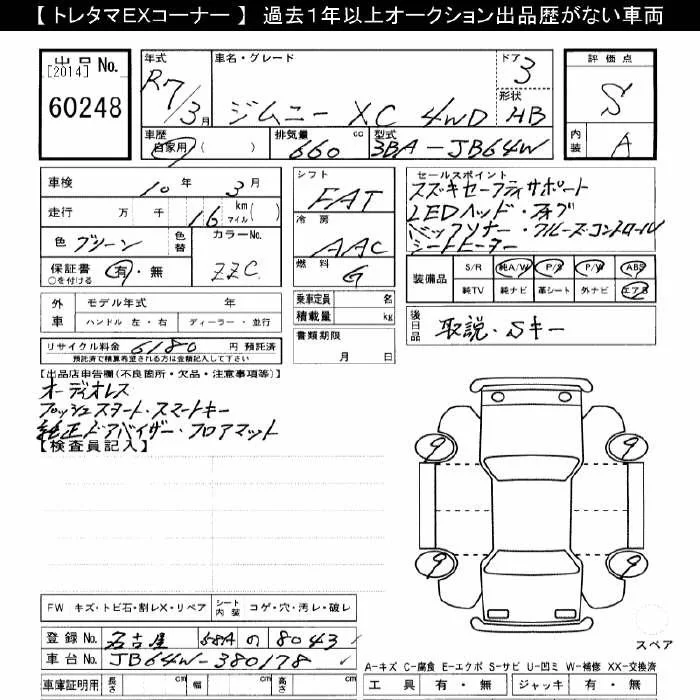 【 トレタマEXコーナー 】 過去１年以上オークション出品歴がない車両
出品 No.
[2014]
60248
年式
R7/3月
車名・グレード
ジムニー XC 4WD
ドア 3
形状 HB
評価点
S
内装 A
車歴
自家用 ( )
排気量 660 cc
型式 3BA-JB64W
車検 10年 3月
走行 万 千 16 km マイル( )
色 グリーン 色替
カラーNo. ZZC
保証書 有・無
○を付ける
シフト FAT
冷房 AAC
燃料 G
乗車定員 名
積載量 kg
書類期限
月 日
セールスポイント
スズキセーフティサポート
LEDヘッド・フォグ
バックソナー・クルーズコントロール
シートヒーター
装備品 S/R 純A/W P/S P/W ABS
純TV 純ナビ 革シート 外ナビ エアB
外車 モデル年式 年
ハンドル 左・右 ディーラー・並行
後日品 取説・Sキー
リサイクル料金 6180 円 預託済
預託済で精算希望される方は金額記入して下さい
【出品店申告欄(不良箇所・欠品・注意事項等)】
オーディオレス
プッシュスタート・スマートキー
純正ドアバイザー・フロアマット
【検査員記入】
9 9
9 9
スペア
FW キズ・トビ石・割レX・リペア シート内装 コゲ・穴・汚レ・破レ
登録No. 名古屋 58A の 8043
車台No. JB64W-380178
車庫証明用 長さ cm 幅 cm 高さ cm
A-キズ C-腐食 E-エクボ S-サビ U-凹ミ W-補修 XX-交換済
工具 有・無 ジャッキ 有・無